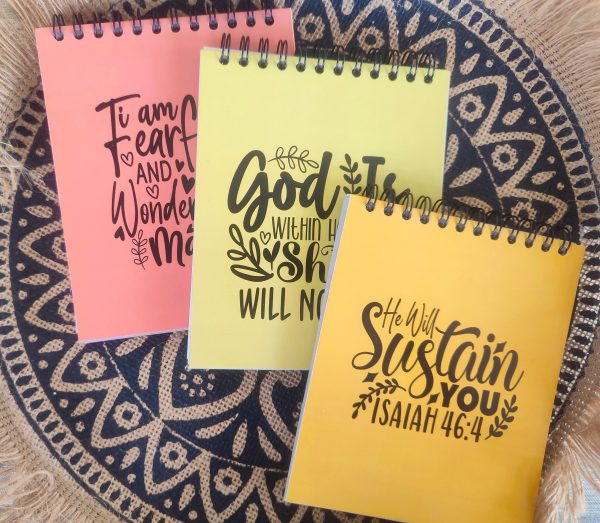 i am
Fearf
AND
Wonder
Ma
God Is
WITHIN H
Sh
WILL NO
He Will
Sustain
YOU
ISAIAH 46:4